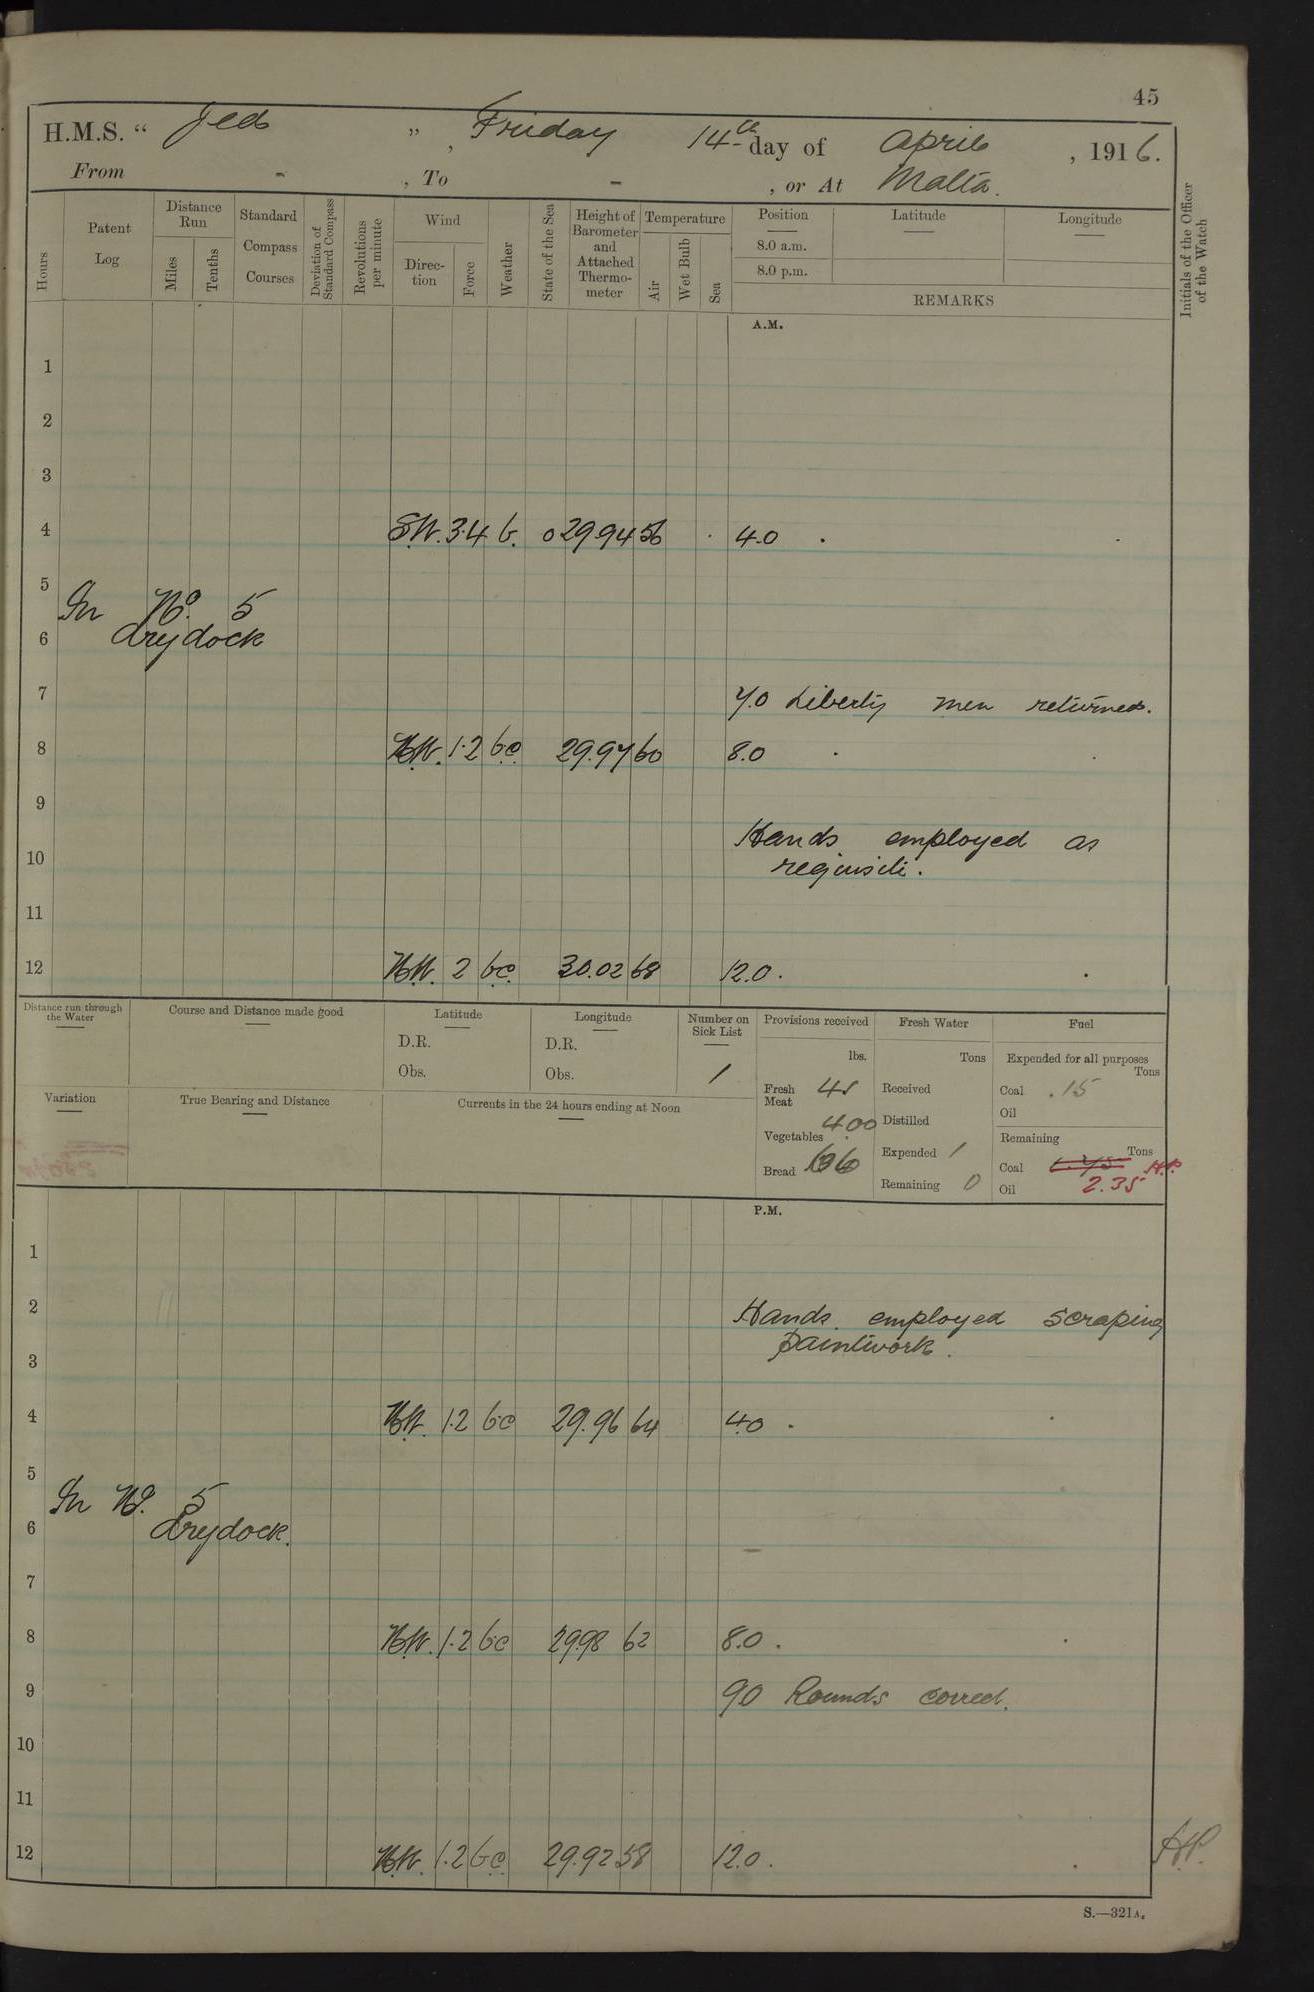 45
H.M.S. “ Jed ” , Friday 14th day of April , 1916.
From - , To - , or At Malta.
Hours
Patent Log
Distance Run
Miles
Tenths
Standard Compass Courses
Deviation of Standard Compass
Revolutions per minute
Wind
Direction
Force
Weather
State of the Sea
Height of Barometer and Attached Thermometer
Temperature
Air
Wet Bulb
Sea
Position
8.0 a.m.
8.0 p.m.
Latitude
Longitude
REMARKS
Initials of the Officer of the Watch
A.M.
1
2
3
4 SW. 3.4 b. 0 29.94 56 4.0 .
5
In No. 5
6 drydock
7 7.0 Liberty men returned.
8 NW. 1.2 bc 29.97 60 8.0 .
9
Hands employed as
10 requisite.
11
12 NW. 2 bc. 30.02 68 12.0 .
Distance run through the Water
Course and Distance made good
Latitude
D.R.
Obs.
Longitude
D.R.
Obs.
Number on Sick List
1
Provisions received
lbs.
Fresh Meat 45
Vegetables 400
Bread 66
Fresh Water
Tons
Received
Distilled
Expended 1
Remaining 0
Fuel
Expended for all purposes
Tons
Coal .15
Oil
Remaining
Tons
Coal H.P.
2.35
Oil
Variation
True Bearing and Distance
Currents in the 24 hours ending at Noon
P.M.
1
2 Hands employed scraping
paintwork.
3
4 NW. 1.2 bc 29.96 64 4.0 .
5
In No. 5
6 drydock.
7
8 NW. 1.2 bc 29.98 62 8.0 .
9 9.0 Rounds correct.
10
11
12 NW. 1.2 bc. 29.92 58 12.0 . H.P.
S.—321A.